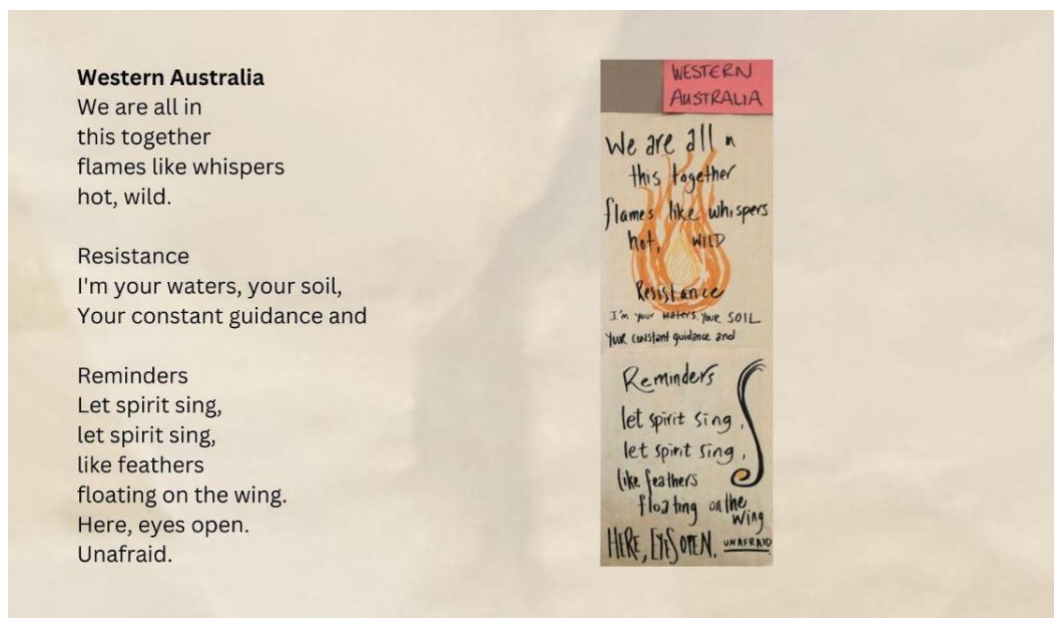 Western Australia
We are all in
this together
flames like whispers
hot, wild.
Resistance
I'm your waters, your soil,
Your constant guidance and
Reminders
Let spirit sing,
let spirit sing,
like feathers
floating on the wing.
Here, eyes open.
Unafraid.
WESTERN
AUSTRALIA
We are all in
this together
flames like whispers
hot, WILD
Resistance
I'm your waters, your SOIL
your constant guidance and
Reminders
let spirit sing,
let spirit sing,
like feathers
floating on the
wing
HERE, EYES OPEN. UNAFRAID